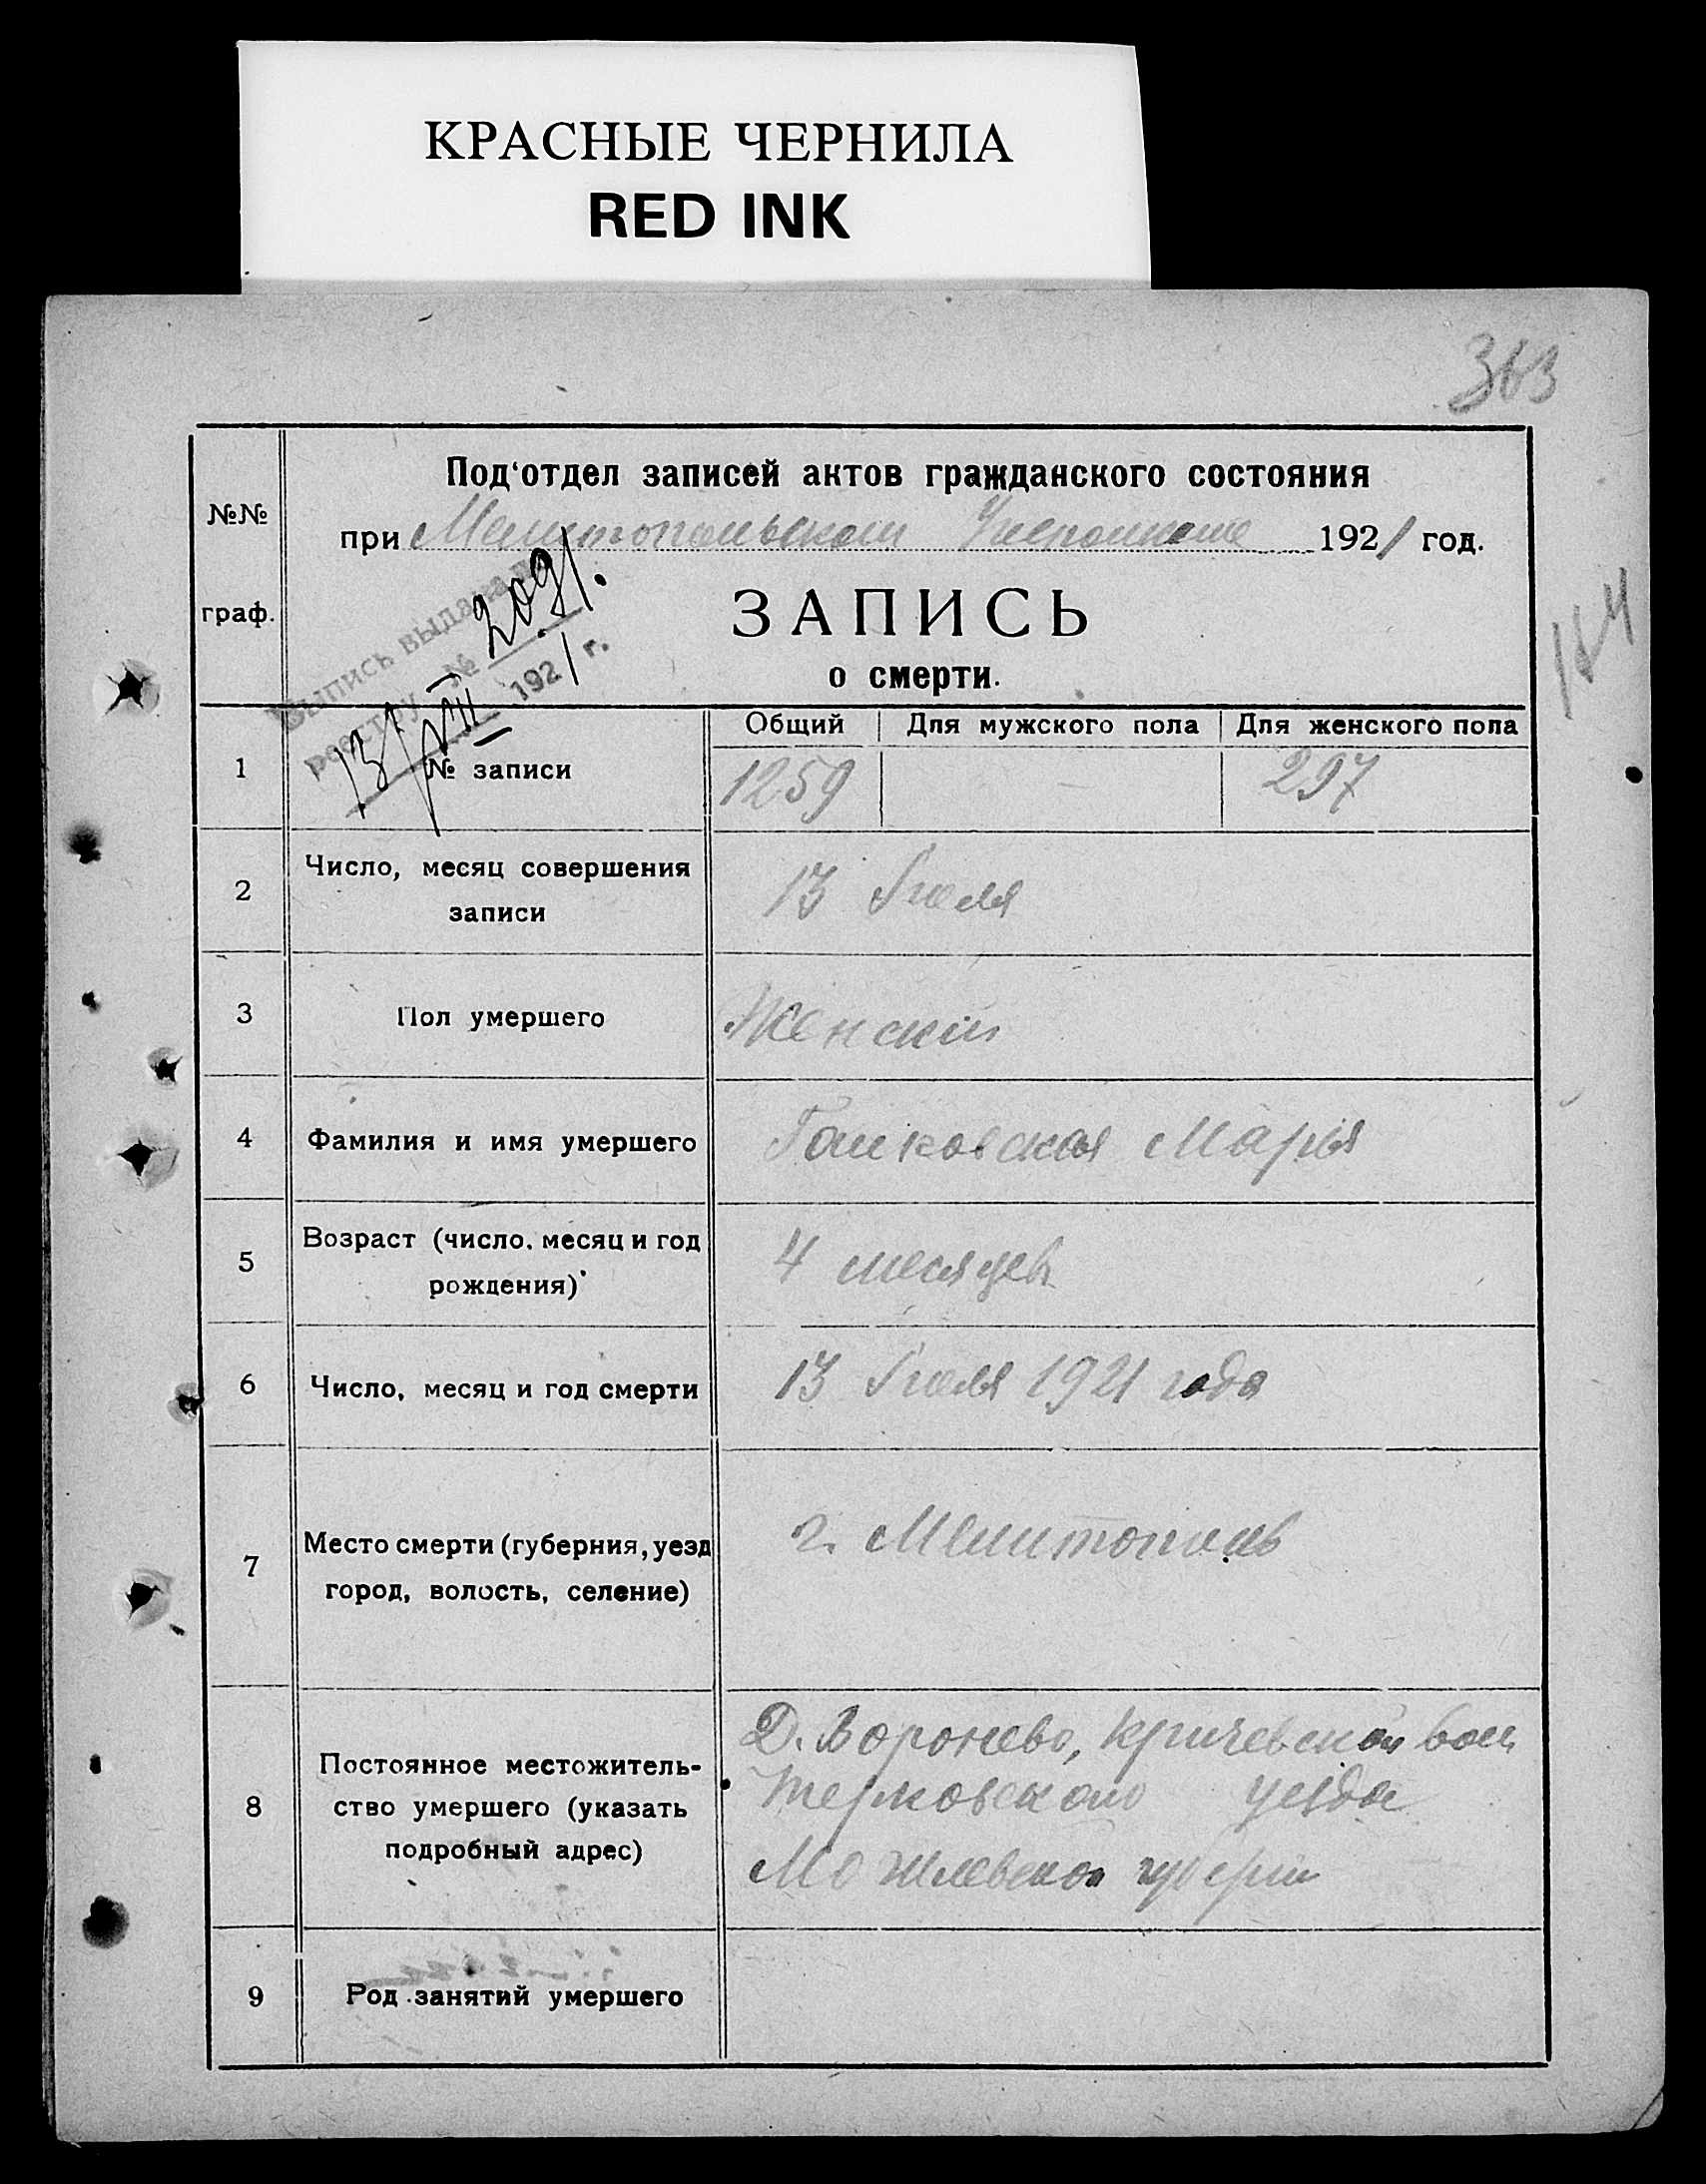 КРАСНЫЕ ЧЕРНИЛА
RED INK
363
Под'отдел записей актов гражданского состояния
№№
при Мелитопольском 1921 год.
ЗАПИСЬ
граф.
о смерти.
Выпись выдана по
реестру № 2091.
13/VII 1921 г.
144
Общий Для мужского пола Для женского пола
1 № записи 1259 — 297
2 Число, месяц совершения
записи
13 Июля
3 Пол умершего Женский
4 Фамилия и имя умершего Гашковская Мария
5 Возраст (число, месяц и год
рождения)
4 месяцев
6 Число, месяц и год смерти 13 Июля 1921 года
7 Место смерти (губерния, уезд
город, волость, селение)
г. Мелитополь
8 Постоянное местожитель-
ство умершего (указать
подробный адрес)
Д. Воронево, Кричевской вол
уезда
Могилевской губерни
9 Род занятий умершего